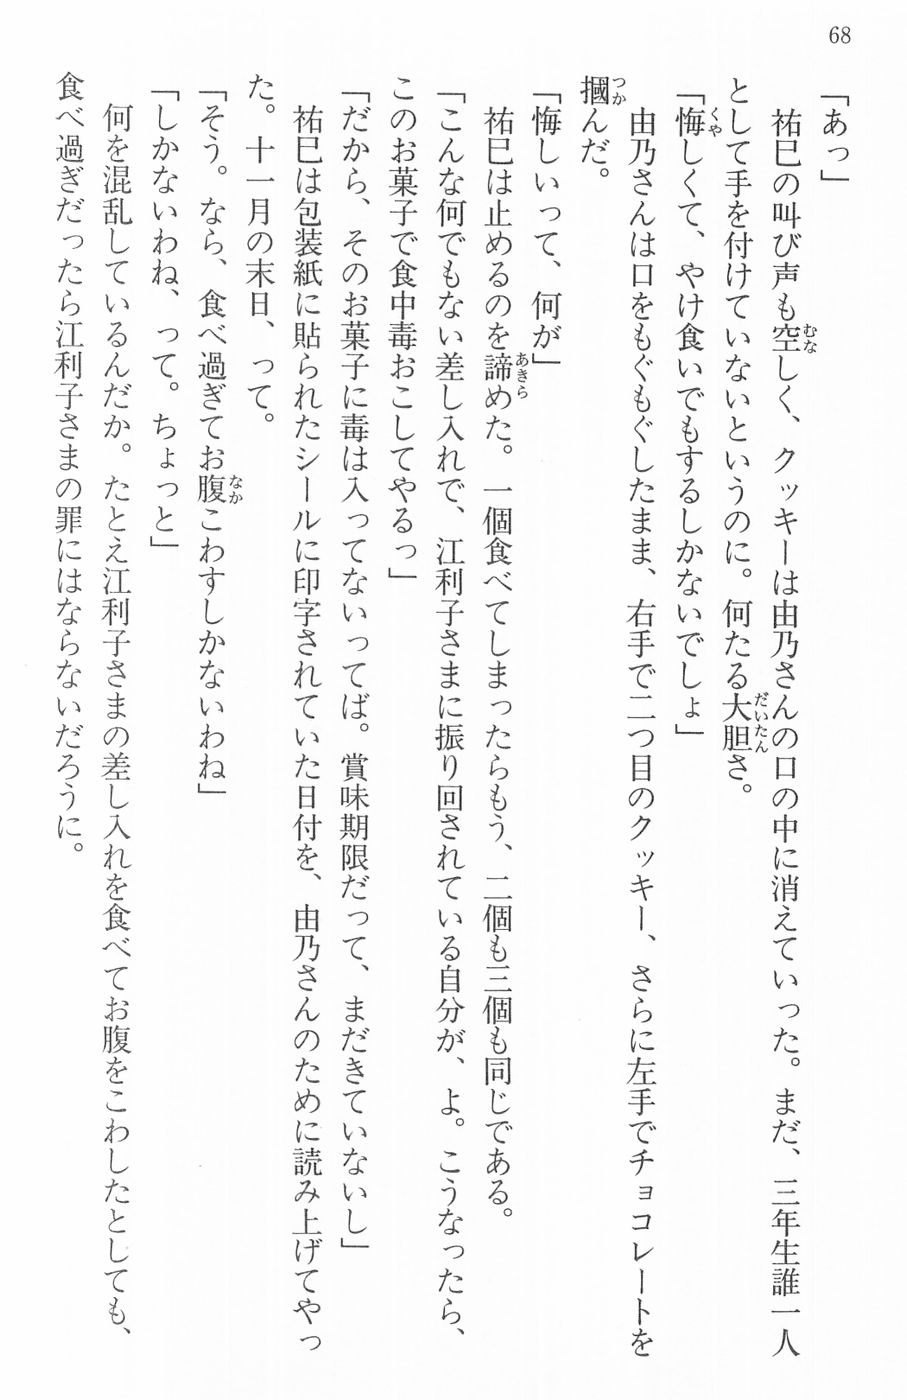 68
「あっ」
祐巳の叫び声も空しく、クッキーは由乃さんの口の中に消えていった。まだ、三年生誰一人
として手を付けていないというのに。何たる大胆さ。
「悔しくて、やけ食いでもするしかないでしょ」
由乃さんは口をもぐもぐしたまま、右手で二つ目のクッキー、さらに左手でチョコレートを
摑んだ。
「悔しいって、何が」
祐巳は止めるのを諦めた。一個食べてしまったらもう、二個も三個も同じである。
「こんな何でもない差し入れで、江利子さまに振り回されている自分が、よ。こうなったら、
このお菓子で食中毒おこしてやるっ」
「だから、そのお菓子に毒は入ってないってば。賞味期限だって、まだきていないし」
祐巳は包装紙に貼られたシールに印字されていた日付を、由乃さんのために読み上げてやっ
た。十一月の末日、って。
「そう。なら、食べ過ぎてお腹こわすしかないわね」
「しかないわね、って。ちょっと」
何を混乱しているんだか。たとえ江利子さまの差し入れを食べてお腹をこわしたとしても、
食べ過ぎだったら江利子さまの罪にはならないだろうに。